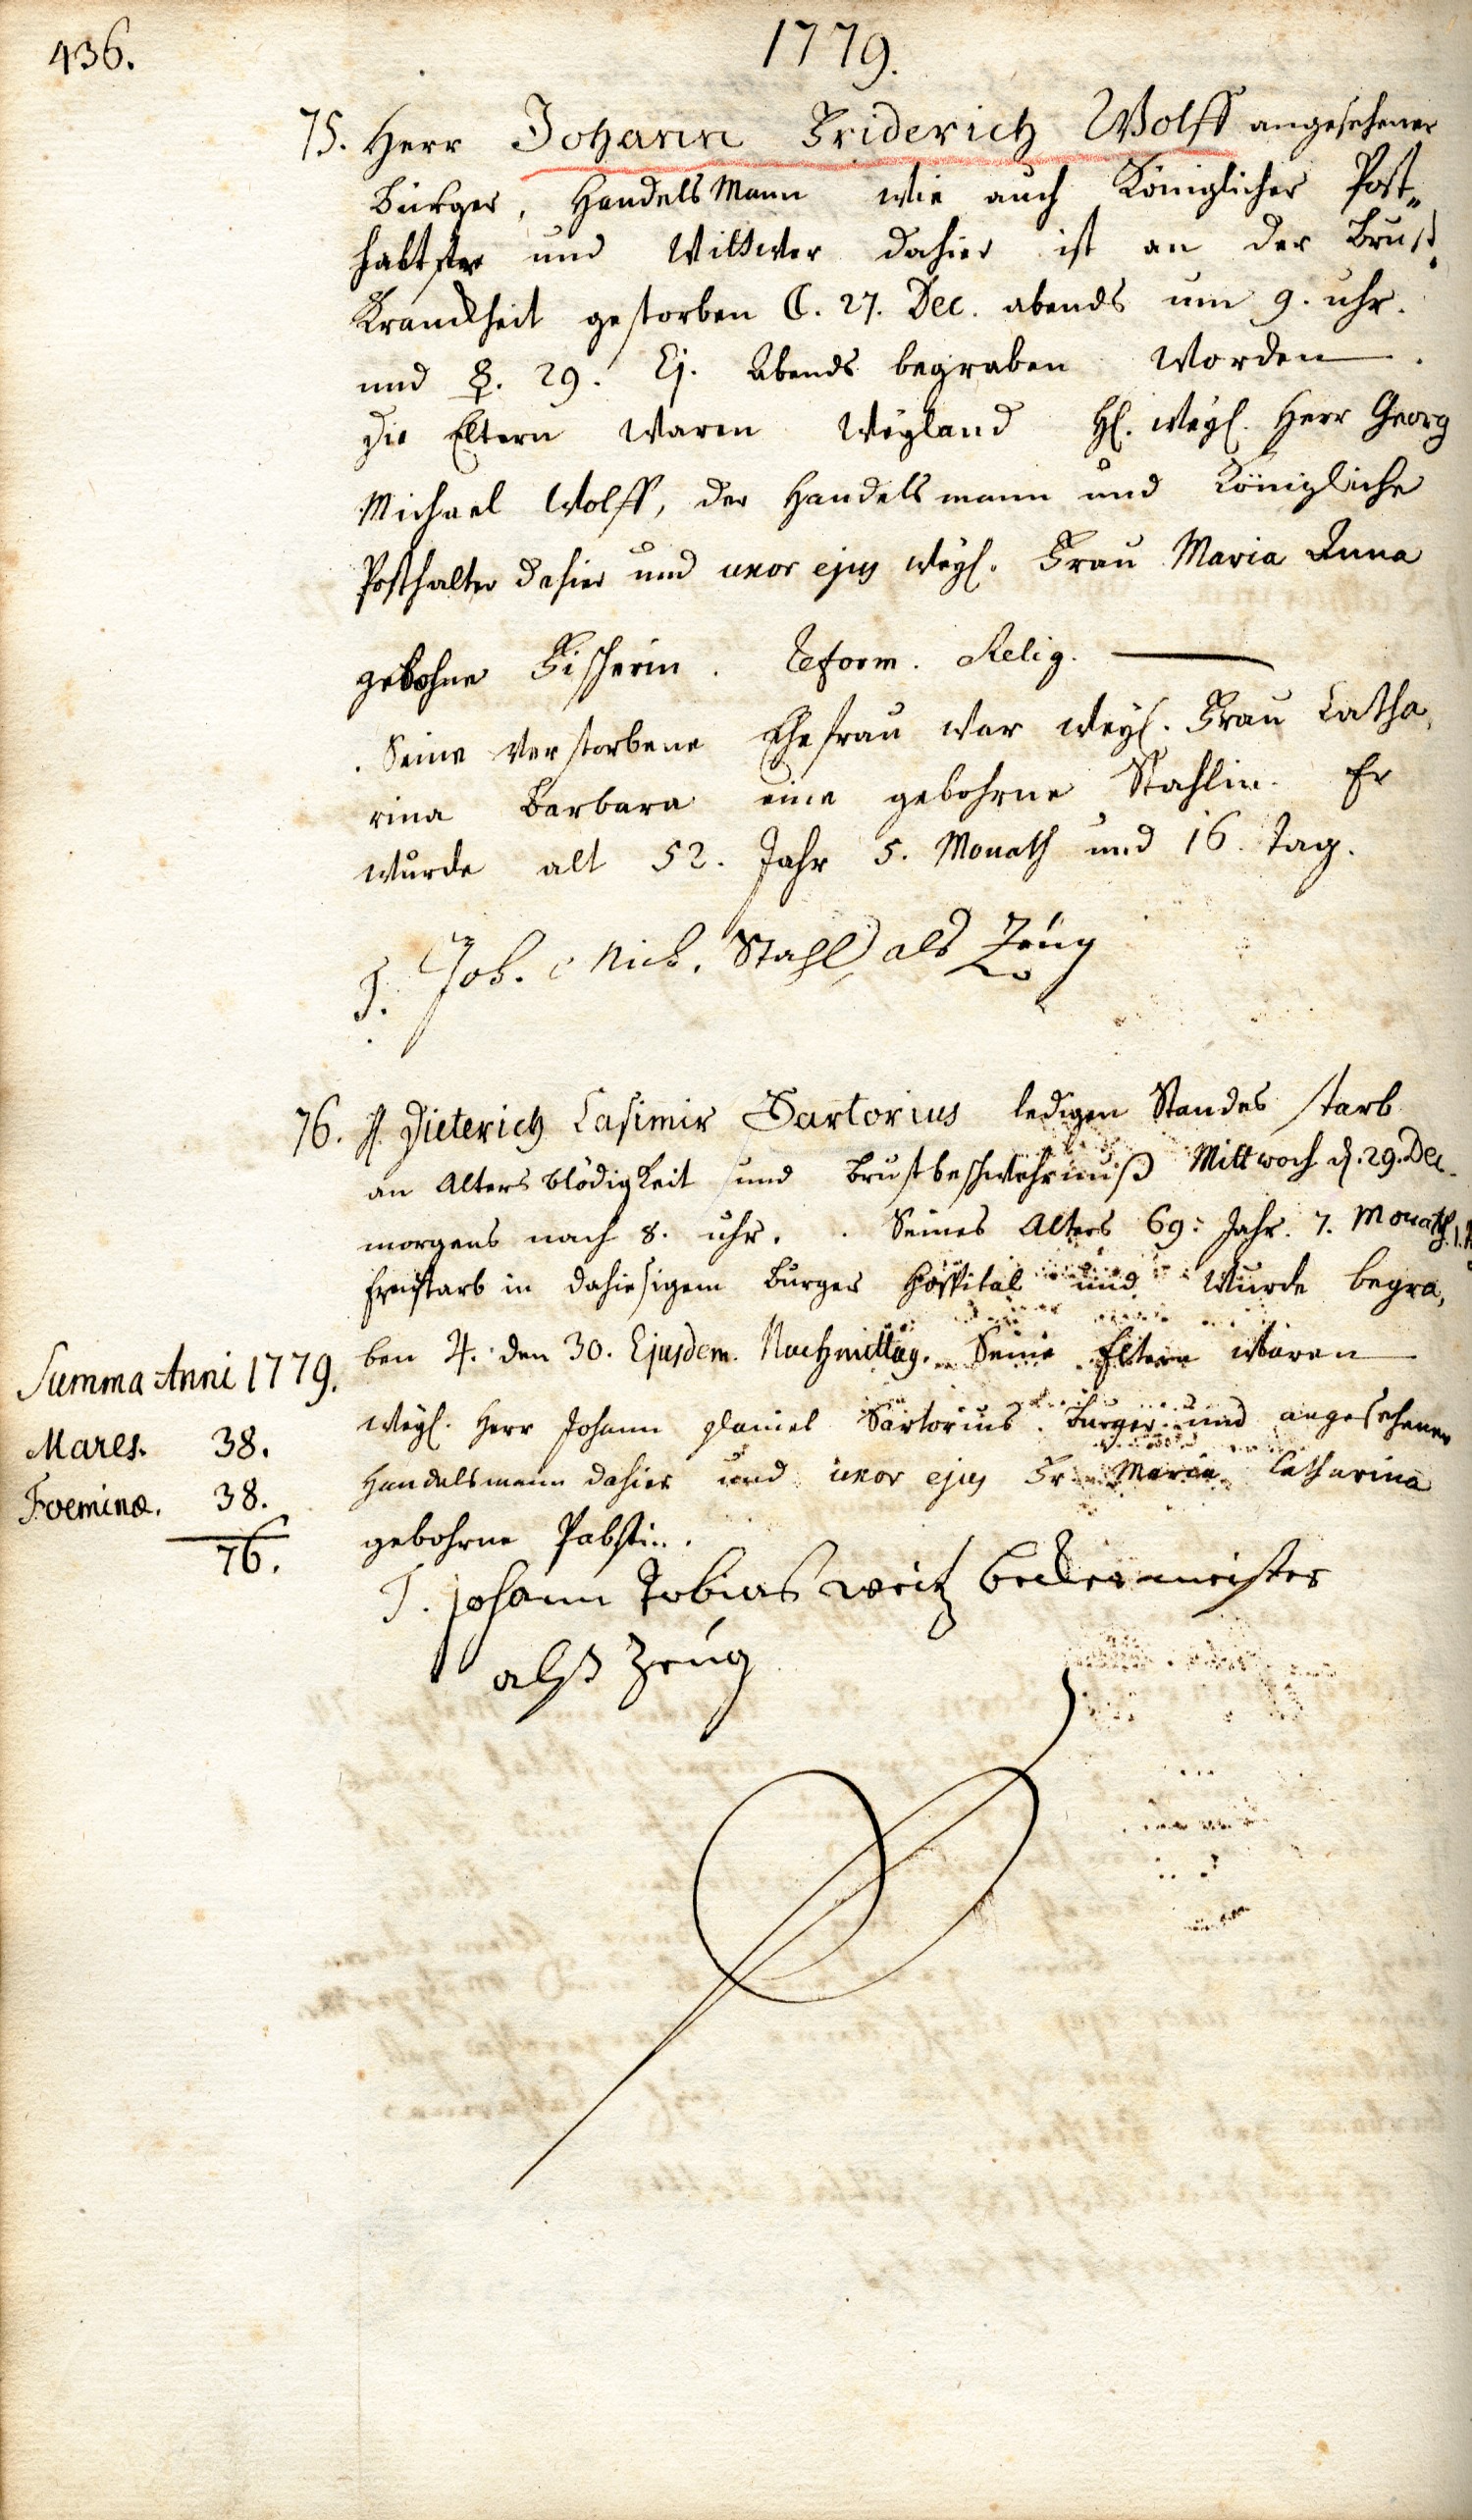 436.
1779.
75. Herr Johann Friderich Wolff angesehener
Bürger, HandelsMann wie auch Königlicher Post„
halter und Wittwer dahier ist an der Brust„
Kranckheit gestorben ☾. 27. Dec. abends um 9. uhr.
und ☿. 29. Ej. Abends begraben worden.
Die Eltern waren Weyland H. weyl. Herr Georg
Michael Wolff, der Handelsmann und Königliche
Posthalter dahier und uxor ejus weyl. Frau Maria Anna
gebohne Fischerin. Reform. Relig.
Seine Verstorbene Ehefrau war weyl. Frau Catha,
rina Barbara eine gebohrne Stahlin. Er
wurde alt 52. Jahr 5. Monath und 16. Tag.
T. Joh. Nick. Stahl als Zeug
76. H. Dieterich Casimir Sartorius ledigen Standes starb
an Alters blödigkeit und Brustbeschwehrnuß Mittwoch d. 29. Dec.
morgens nach 8. uhr. Seines Alters 69: Jahr. 7. Monath
starb in dahiesigem Burger Hospital und wurde begra,
ben ♃. den 30. Ejusdem. Nachmittag. Seine Eltern waren
weyl. Herr Johann Daniel Sartorius. Burger und angesehener
Handelsmann dahier und uxor ejus Fr. Maria Catharina
gebohrne Pabstin.
T. Johann Tobias weitz beckermeister
alß Zeug
Summa Anni 1779.
Mares. 38.
Foeminæ. 38.
76.